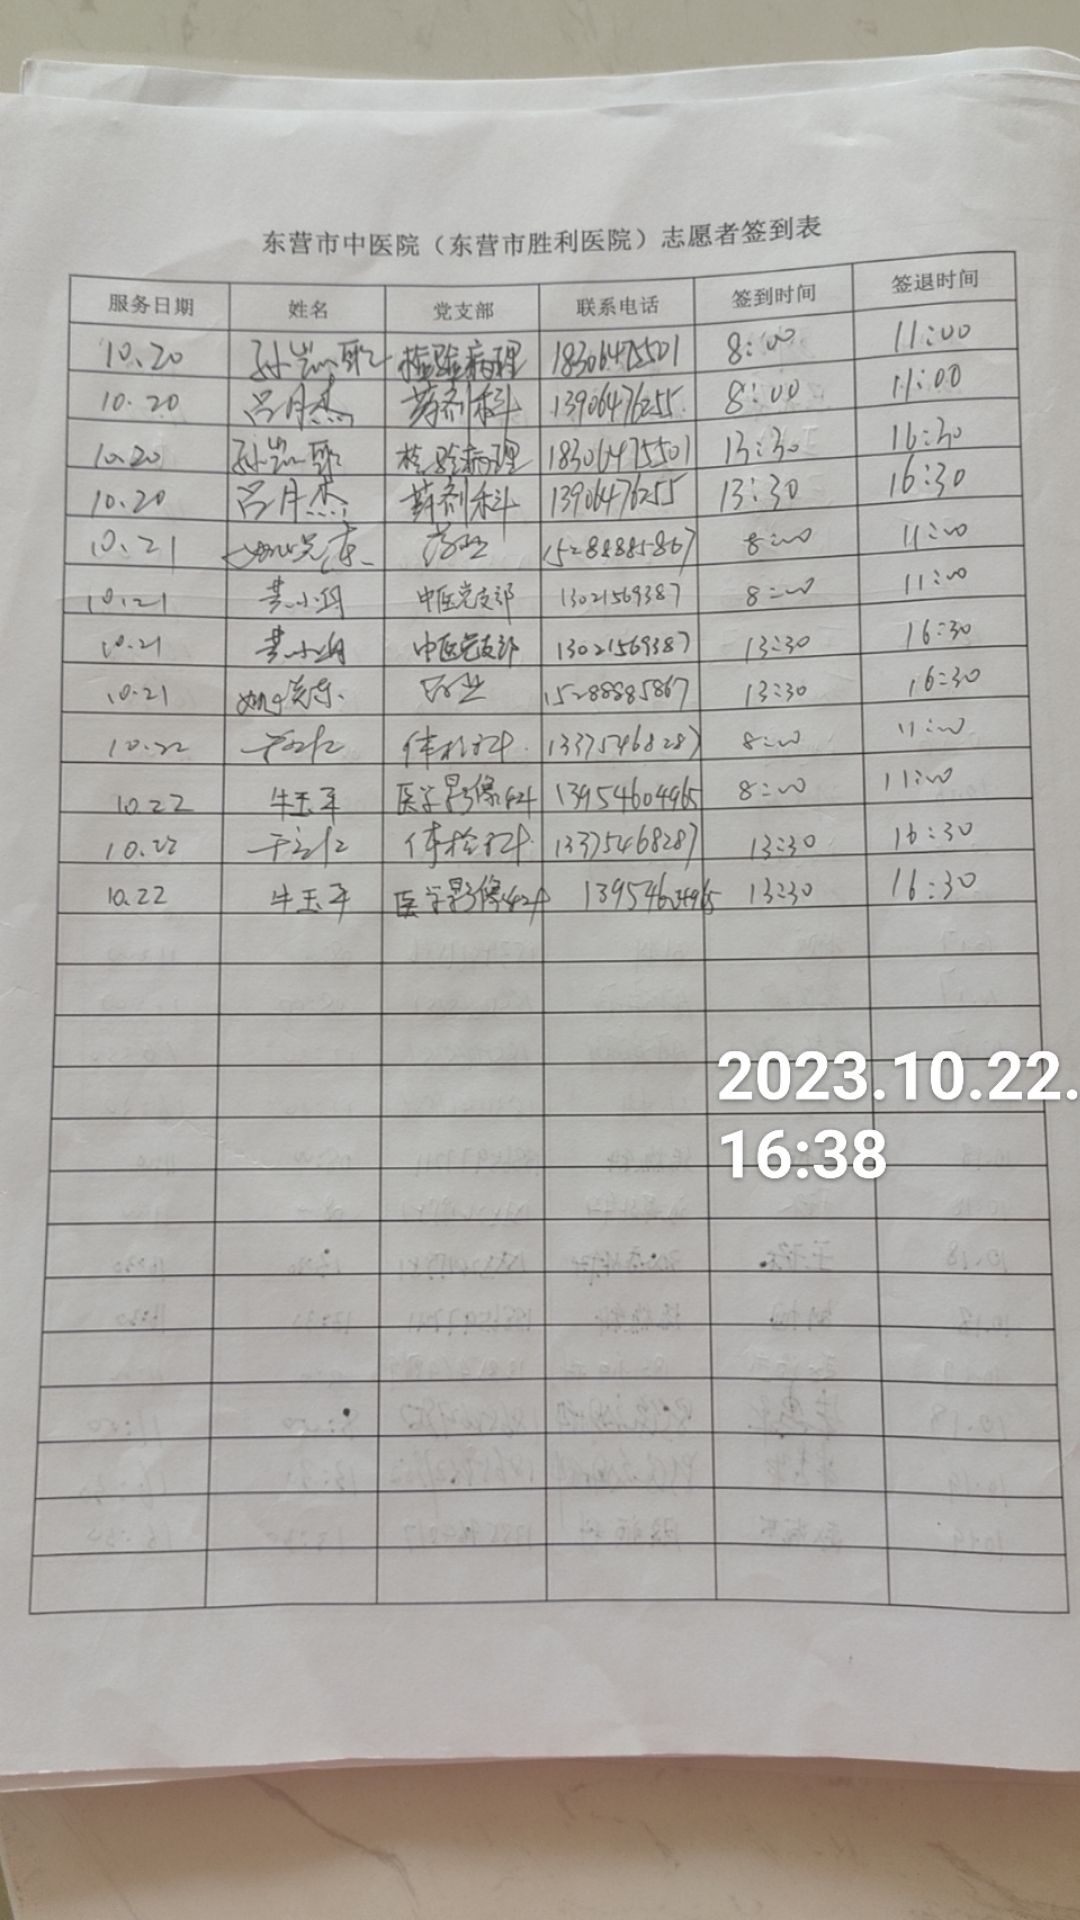 东营市中医院（东营市胜利医院）志愿者签到表
服务日期 姓名 党支部 联系电话 签到时间 签退时间
10.20 孙岩聪 检验病理 18306475501 8:00 11:00
10.20 吕月杰 药剂科 13906476255 8:00 11:00
10.20 孙岩聪 检验病理 18306475501 13:30 16:30
10.20 吕月杰 药剂科 13906476255 13:30 16:30
10.21 15288885867 8:00 11:00
10.21 中医党支部 13021569387 8:00 11:00
10.21 中医党支部 13021569387 13:30 16:30
10.21 15288885867 13:30 16:30
10.22 体检科 13375468287 8:00 11:00
10.22 牛玉平 医学影像科 13954604965 8:00 11:00
10.22 体检科 13375468287 13:30 16:30
10.22 牛玉平 医学影像科 13954604965 13:30 16:30
2023.10.22.
16:38